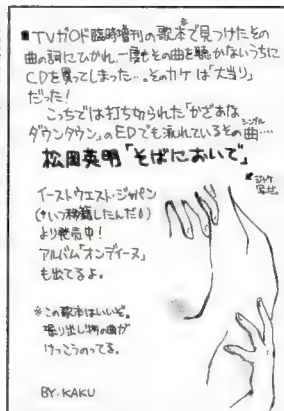 ■TVガイド臨時増刊の歌本*で見つけたその
曲の詞にひかれ、一度もその曲を聴かないうちに
CDを買ってしまった…。そのカケは「大当り」
だった！
こっちでは打ち切られた「かざあな
ダウンタウン」のEDでも流れているその曲‥‥
シングル
松岡英明「そばにおいで」
ジャケ
写だ。
イーストウエスト・ジャパン
(*いつ移籍したんだ!)
より発売中！
アルバム「オンディーヌ」
も出てるよ。
※この歌本はいいぞ。
掘り出し物の曲が
けっこうのってる。
BY.KAKU